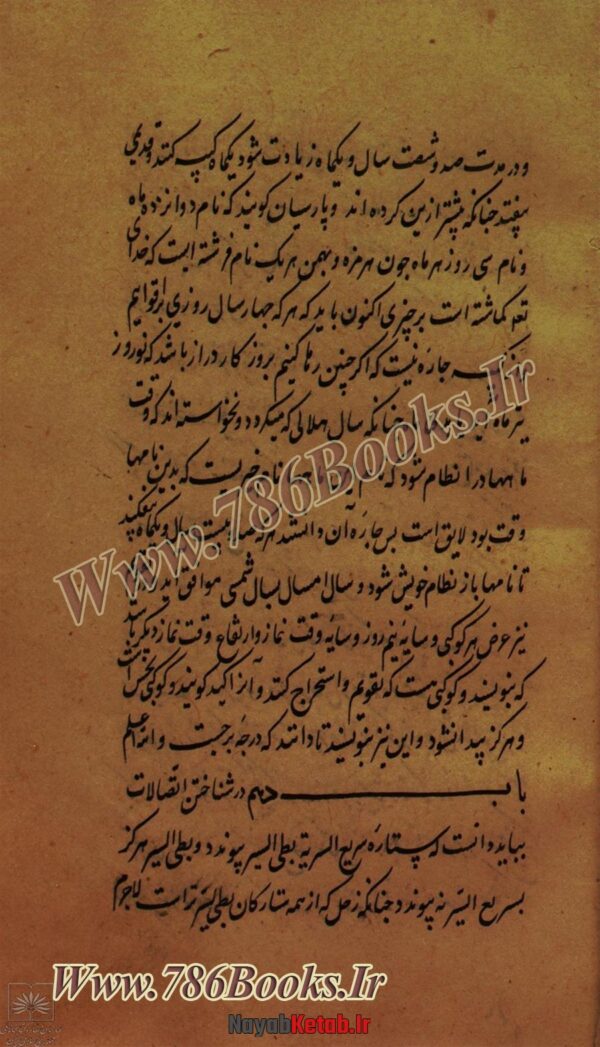 و در مدت صد و شصت سال و یکماه زیادت شود یکماه کپ کنند و قدی
بیفتد جنانکه پیشتر ازین کرده اند و پارسیان کویند که نام دوانزده ماه
و نام سی روز هر ماه جون هرمزه و بهمن هر یک نام فرشته ایست که خدای
تعه کماشته است بر چیزی اکنون باید که هر که جهار سال روزی بر اقوایم
جاره نیست که اکر چنین رها کنیم بروز کار دراز باشد که نوروز
تیر ماه جنانکه سال هلالی که میکردد و نخواسته اند که وقت
ما هها در انظام شود که بدین نامها
وقت بود لایق است بس جاره آن دانستند هر که صد و بیست سال و یکماه بیفکنند
تا نامها باز نظام خویش شود و سال امسال بسال شمسی موافق اید
نیز عرض هر کوکبی و سایه نیم روز و سایه وقت نماز و ارتفاع وقت نماز دیکر باشد
که بنویسند و کوکبی هست که تقویم و استخراج کنند و آنرا کید کویند و کوکبی نحس است
و هرکز پیدا نشود و این نیز بنویسند تا دانند که درجه برجست و الله اعلم
باب دهم در شناختن اتصالات
بباید دانست که ستاره سریع السیر به بطی السیر پیوندد و بطی السیر هرکز
بسریع السیر نه پیوندد جنانکه زحل که از همه ستارکان بطی السیرتر است لاجرم
Www.786Books.Ir
Www.786Books.Ir
NayabKetab.Ir